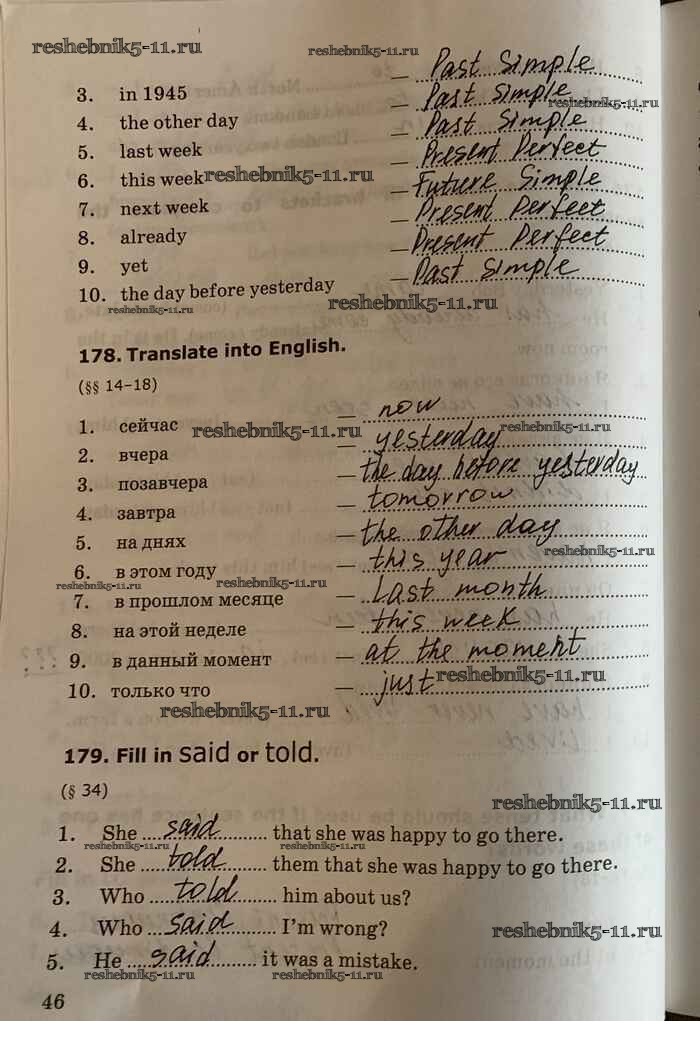 reshebnik5-11.ru reshebnik5-11.ru
3. in 1945 — Past Simple
4. the other day — Past Simple reshebnik5-11.ru
5. last week — Past Simple
6. this week reshebnik5-11.ru — Present Perfect
7. next week — Future Simple
8. already — Present Perfect
9. yet — Present Perfect
10. the day before yesterday — Past Simple
reshebnik5-11.ru reshebnik5-11.ru
178. Translate into English.
(§§ 14–18)
1. сейчас — now
reshebnik5-11.ru reshebnik5-11.ru
2. вчера — yesterday
3. позавчера — the day before yesterday
4. завтра — tomorrow
5. на днях — the other day
6. в этом году — this year reshebnik5-11.ru
reshebnik5-11.ru reshebnik5-11.ru
7. в прошлом месяце — Last month
8. на этой неделе — this week
9. в данный момент — at the moment
10. только что — just reshebnik5-11.ru
reshebnik5-11.ru
179. Fill in said or told.
(§ 34)
reshebnik5-11.ru
1. She said that she was happy to go there.
reshebnik5-11.ru reshebnik5-11.ru
2. She told them that she was happy to go there.
3. Who told him about us?
4. Who said I'm wrong? reshebnik5-11.ru
5. He said it was a mistake.
reshebnik5-11.ru reshebnik5-11.ru
46